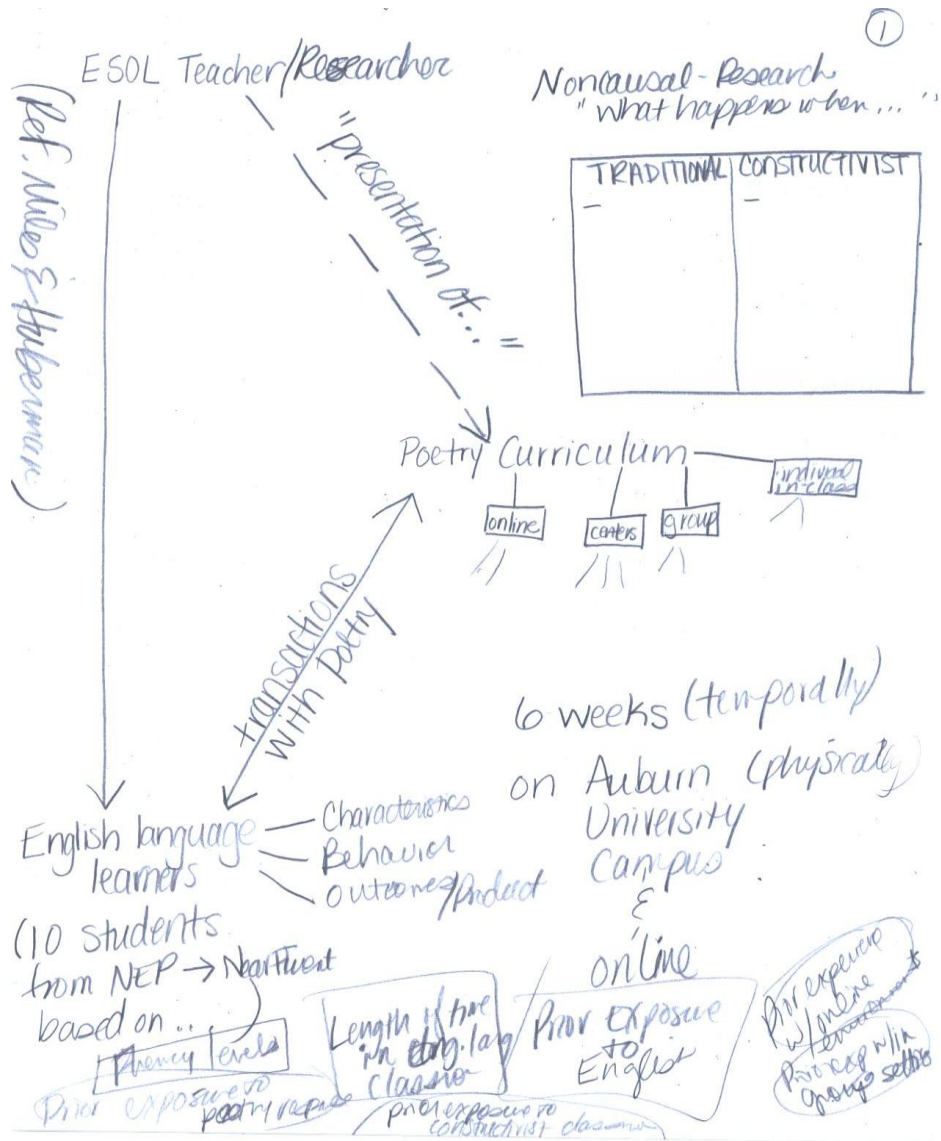 1
ESOL Teacher/Researcher
Noncausal-Research
"What happens when..."
(Ref. Miles & Huberman)
"presentation of..."
TRADITIONAL
CONSTRUCTIVIST
Poetry Curriculum
online
centers
group
in-class
transactions
with Poetry
6 weeks (temporally)
on Auburn (physically)
University
Campus
&
online
English language
learners
Characteristics
Behavior
Outcomes/Product
(10 students
from NEP → Near Fluent
based on ..
fluency levels
Length of time
in eng. lang
Prior Exposure
to
English
Prior experience
w/online
Prior exp w/in
group setting
Prior exposure to
poetry
prior exposure to
constructivist